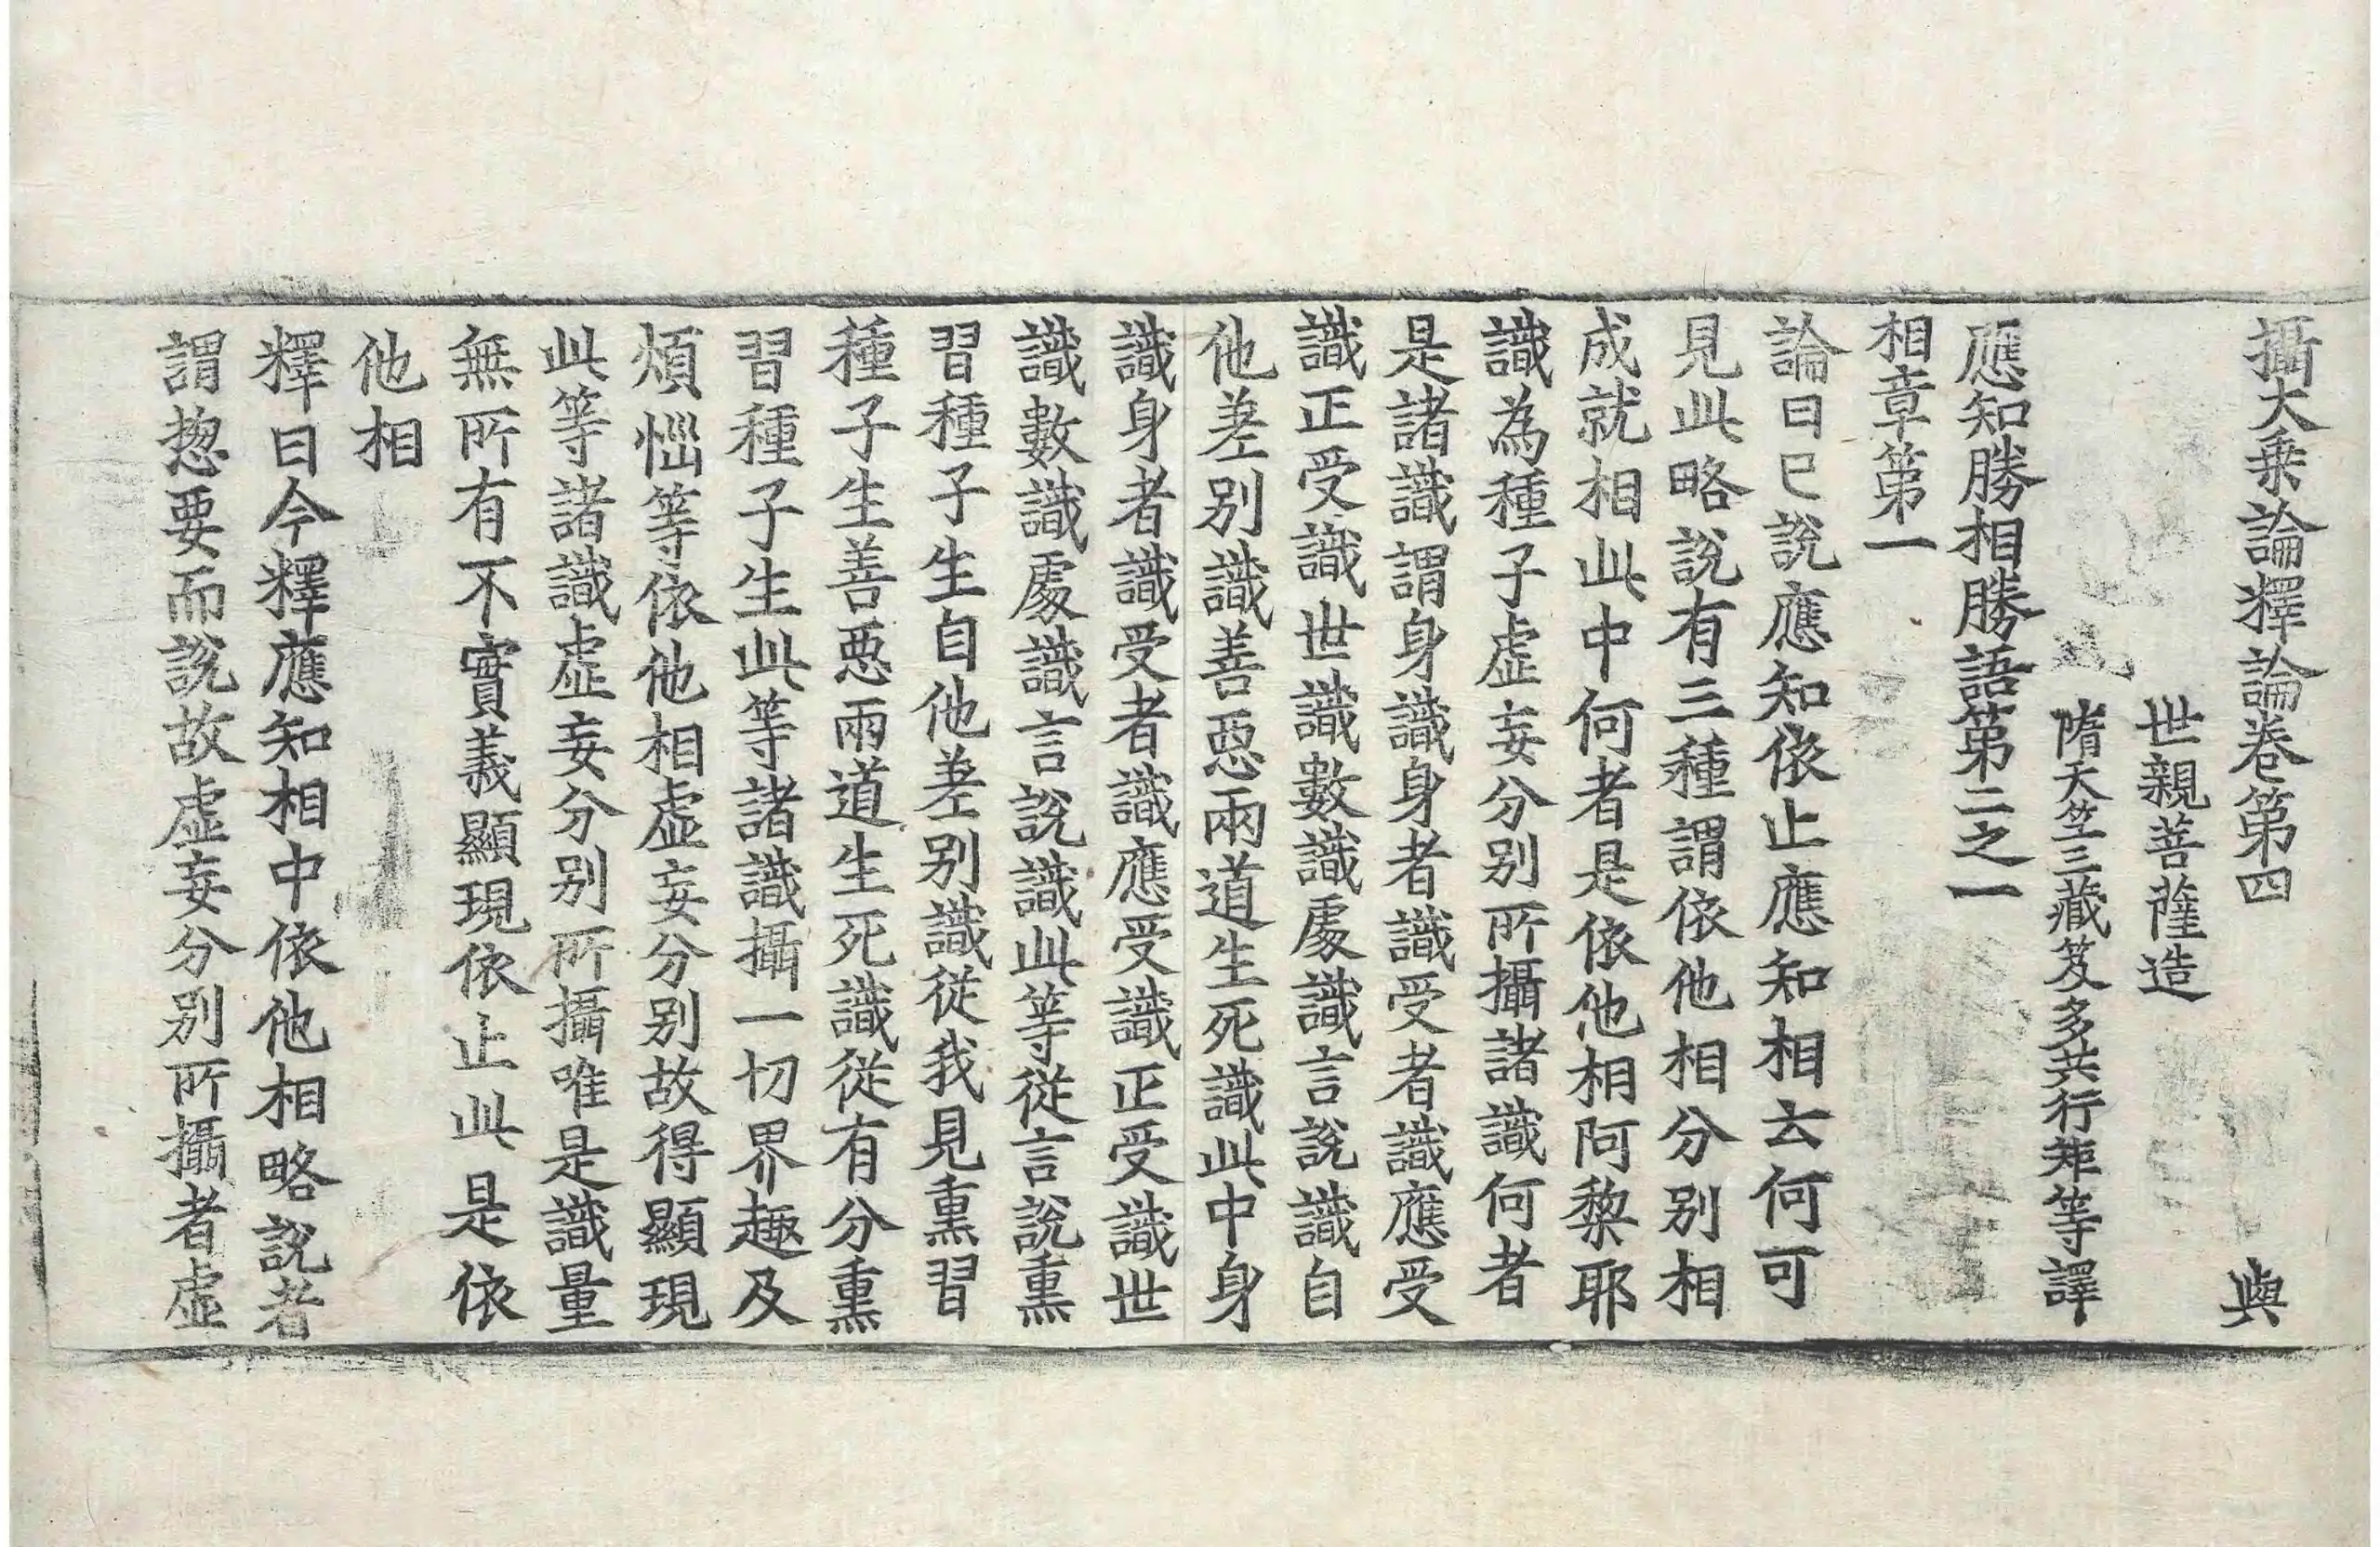 攝大乗論釋論卷第四 輿
世親菩薩造
隋天竺三藏笈多共行矩等譯
應知勝相勝語第二之一
相章第一
論曰已說應知依止應知相云何可
見此略說有三種謂依他相分別相
成就相此中何者是依他相阿黎耶
識為種子虛妄分別所攝諸識何者
是諸識謂身識身者識受者識應受
識正受識世識數識處識言說識自
他差別識善惡兩道生死識此中身
識身者識受者識應受識正受識世
識數識處識言說識此等從言說熏
習種子生自他差別識從我見熏習
種子生善惡兩道生死識從有分熏
習種子生此等諸識攝一切界趣及
煩惱等依他相虛妄分別故得顯現
此等諸識虛妄分別所攝唯是識量
無所有不實義顯現依止此是依
他相
釋曰今釋應知相中依他相略說者
謂惣要而說故虛妄分別所攝者虛